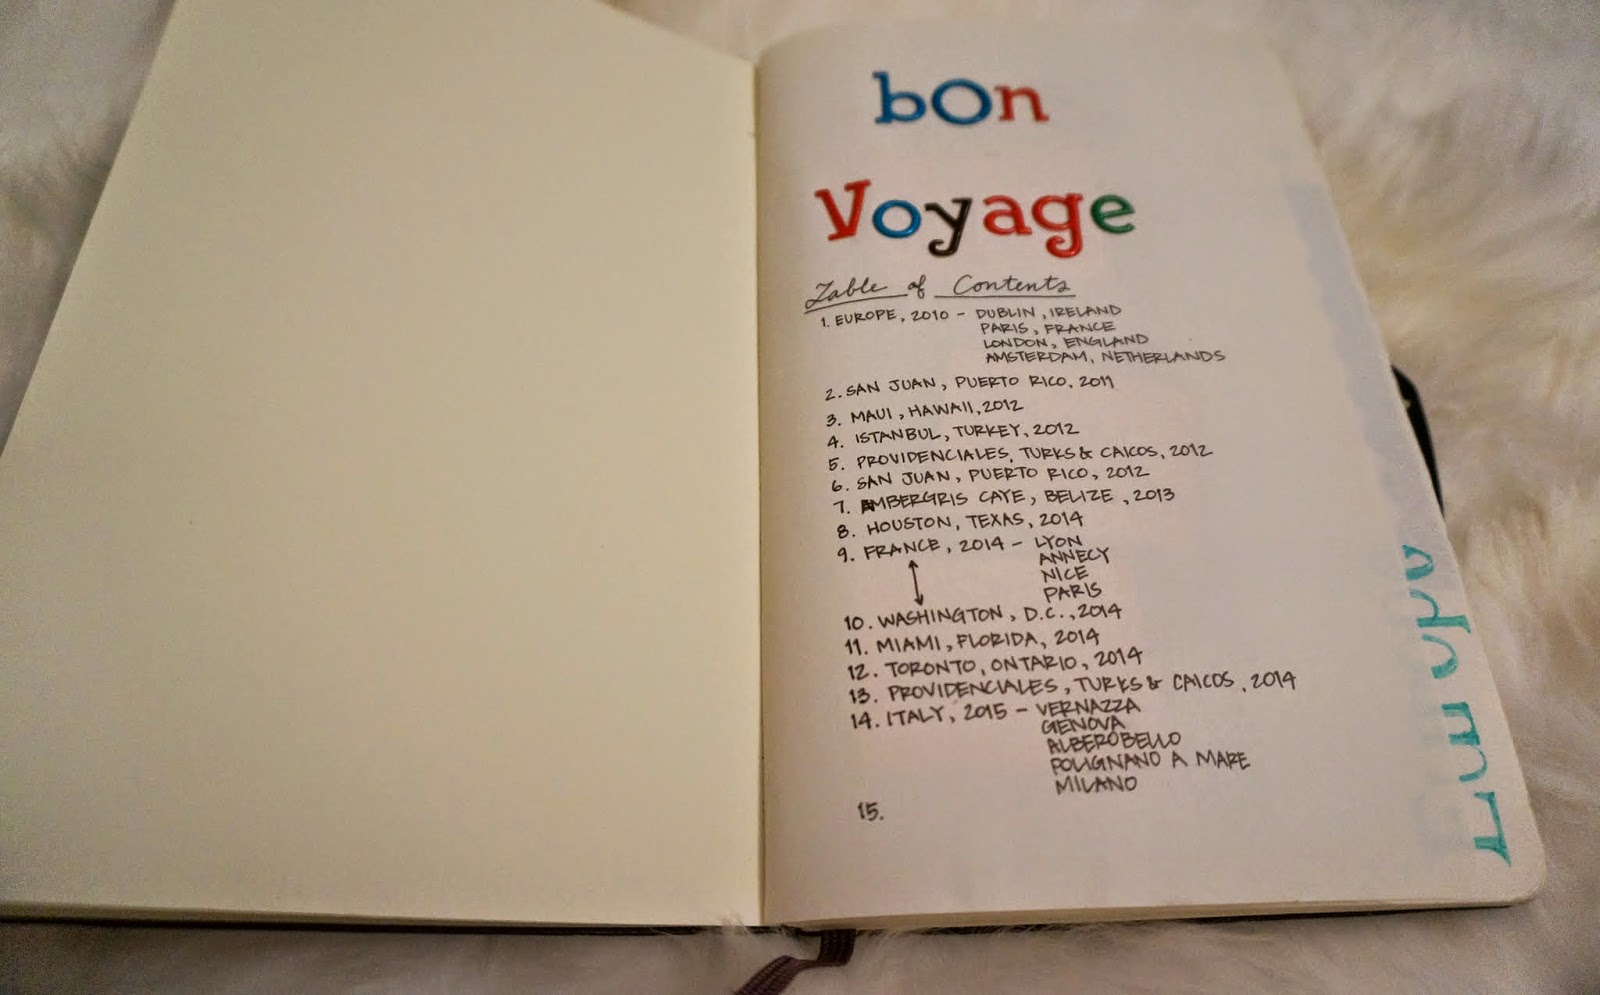 bOn
Voyage
Table of Contents
1. EUROPE, 2010 - DUBLIN, IRELAND
PARIS, FRANCE
LONDON, ENGLAND
AMSTERDAM, NETHERLANDS
2. SAN JUAN, PUERTO RICO, 2011
3. MAUI, HAWAII, 2012
4. ISTANBUL, TURKEY, 2012
5. PROVIDENCIALES, TURKS & CAICOS, 2012
6. SAN JUAN, PUERTO RICO, 2012
7. AMBERGRIS CAYE, BELIZE, 2013
8. HOUSTON, TEXAS, 2014
9. FRANCE, 2014 - LYON
ANNECY
NICE
PARIS
10. WASHINGTON, D.C., 2014
11. MIAMI, FLORIDA, 2014
12. TORONTO, ONTARIO, 2014
13. PROVIDENCIALES, TURKS & CAICOS, 2014
14. ITALY, 2015 - VERNAZZA
GENOVA
ALBEROBELLO
POLIGNANO A MARE
MILANO
15.